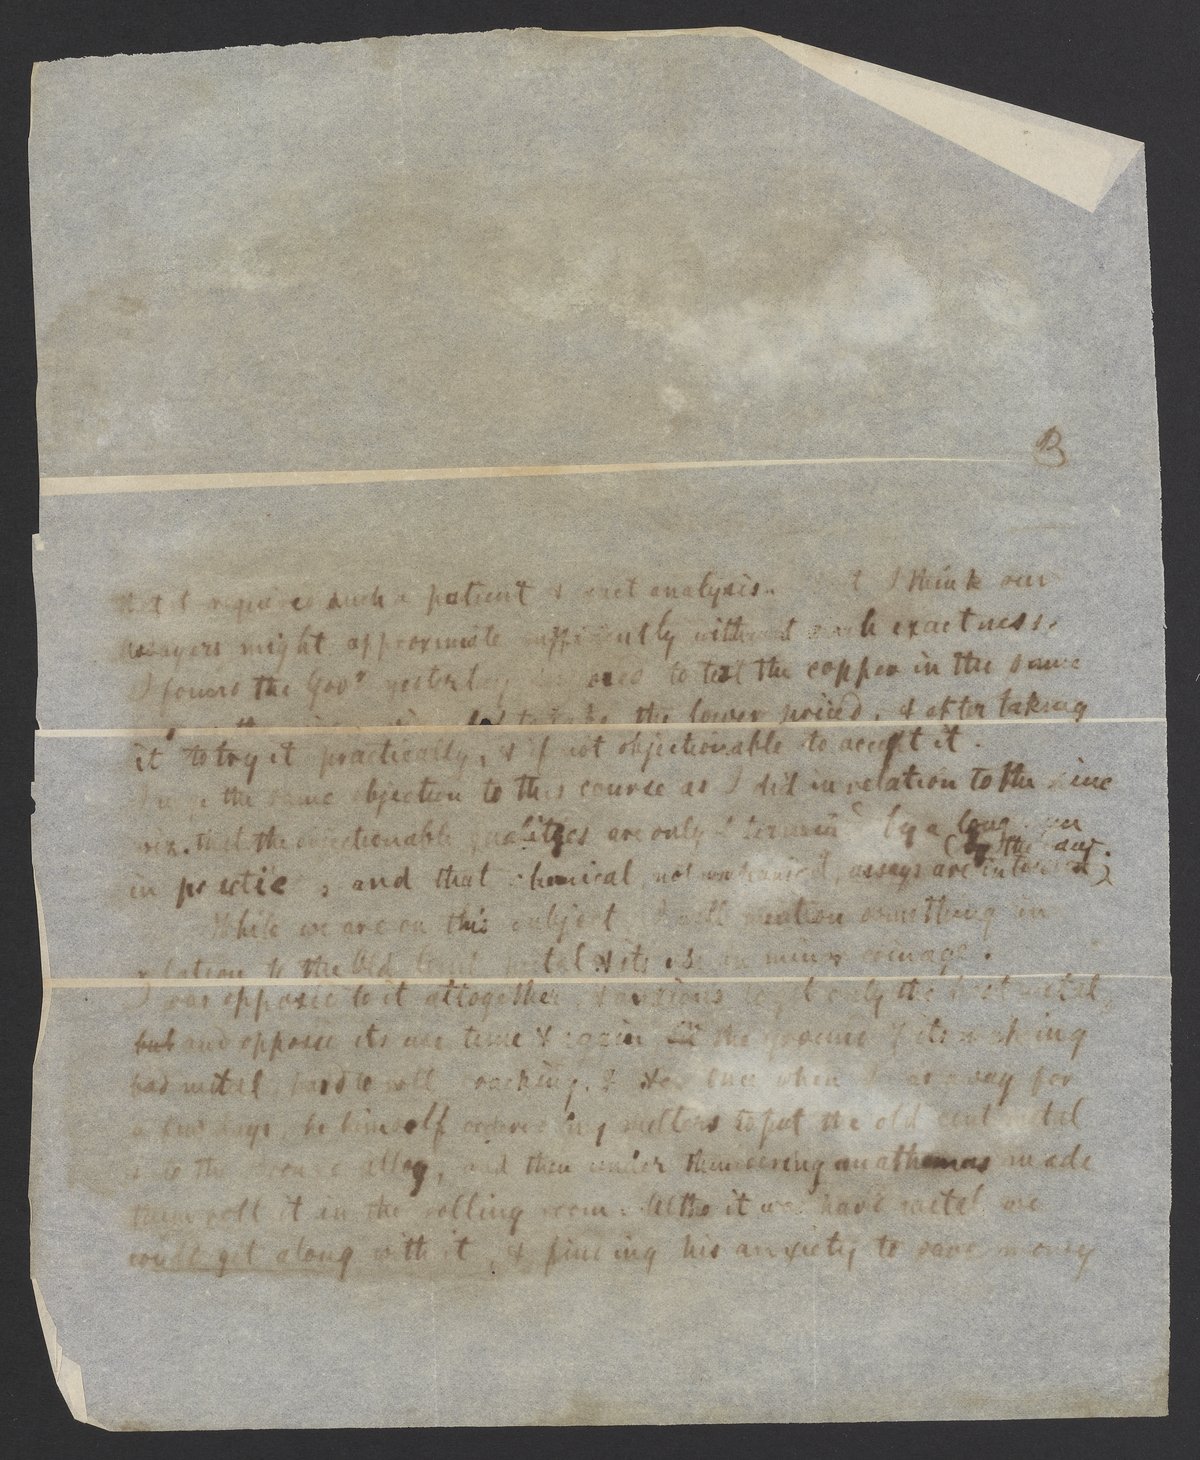 B
that it requires such a patient & exact analysis. I think our
assayers might approximate sufficiently without such exactness.
I found the Govr yesterday to test the copper in the same
the lower priced, & after taking
it to try it practically, & if not objectionable to accept it.
I urge the same objection to this course as I did in relation to the zinc
viz. that the objectionable qualities are only determined by a long run
(by the way.
in practice, and that chemical, not mechanical, assays are intended)
While we are on this subject I will mention something in
relation to the Old Cent metal & its use in minor coinage.
I was opposed to it altogether, & anxious to get only the best metal,
but and opposed its use time & again on the ground of its making
bad metal, hard to roll cracking, & once when I was away for
a few days, he himself ordered my melters to put the old cent metal
into the bronze alloy, and then under thundering anathemas made
them roll it in the rolling room. Altho it was hard metal we
could get along with it, & finding his anxiety to save money